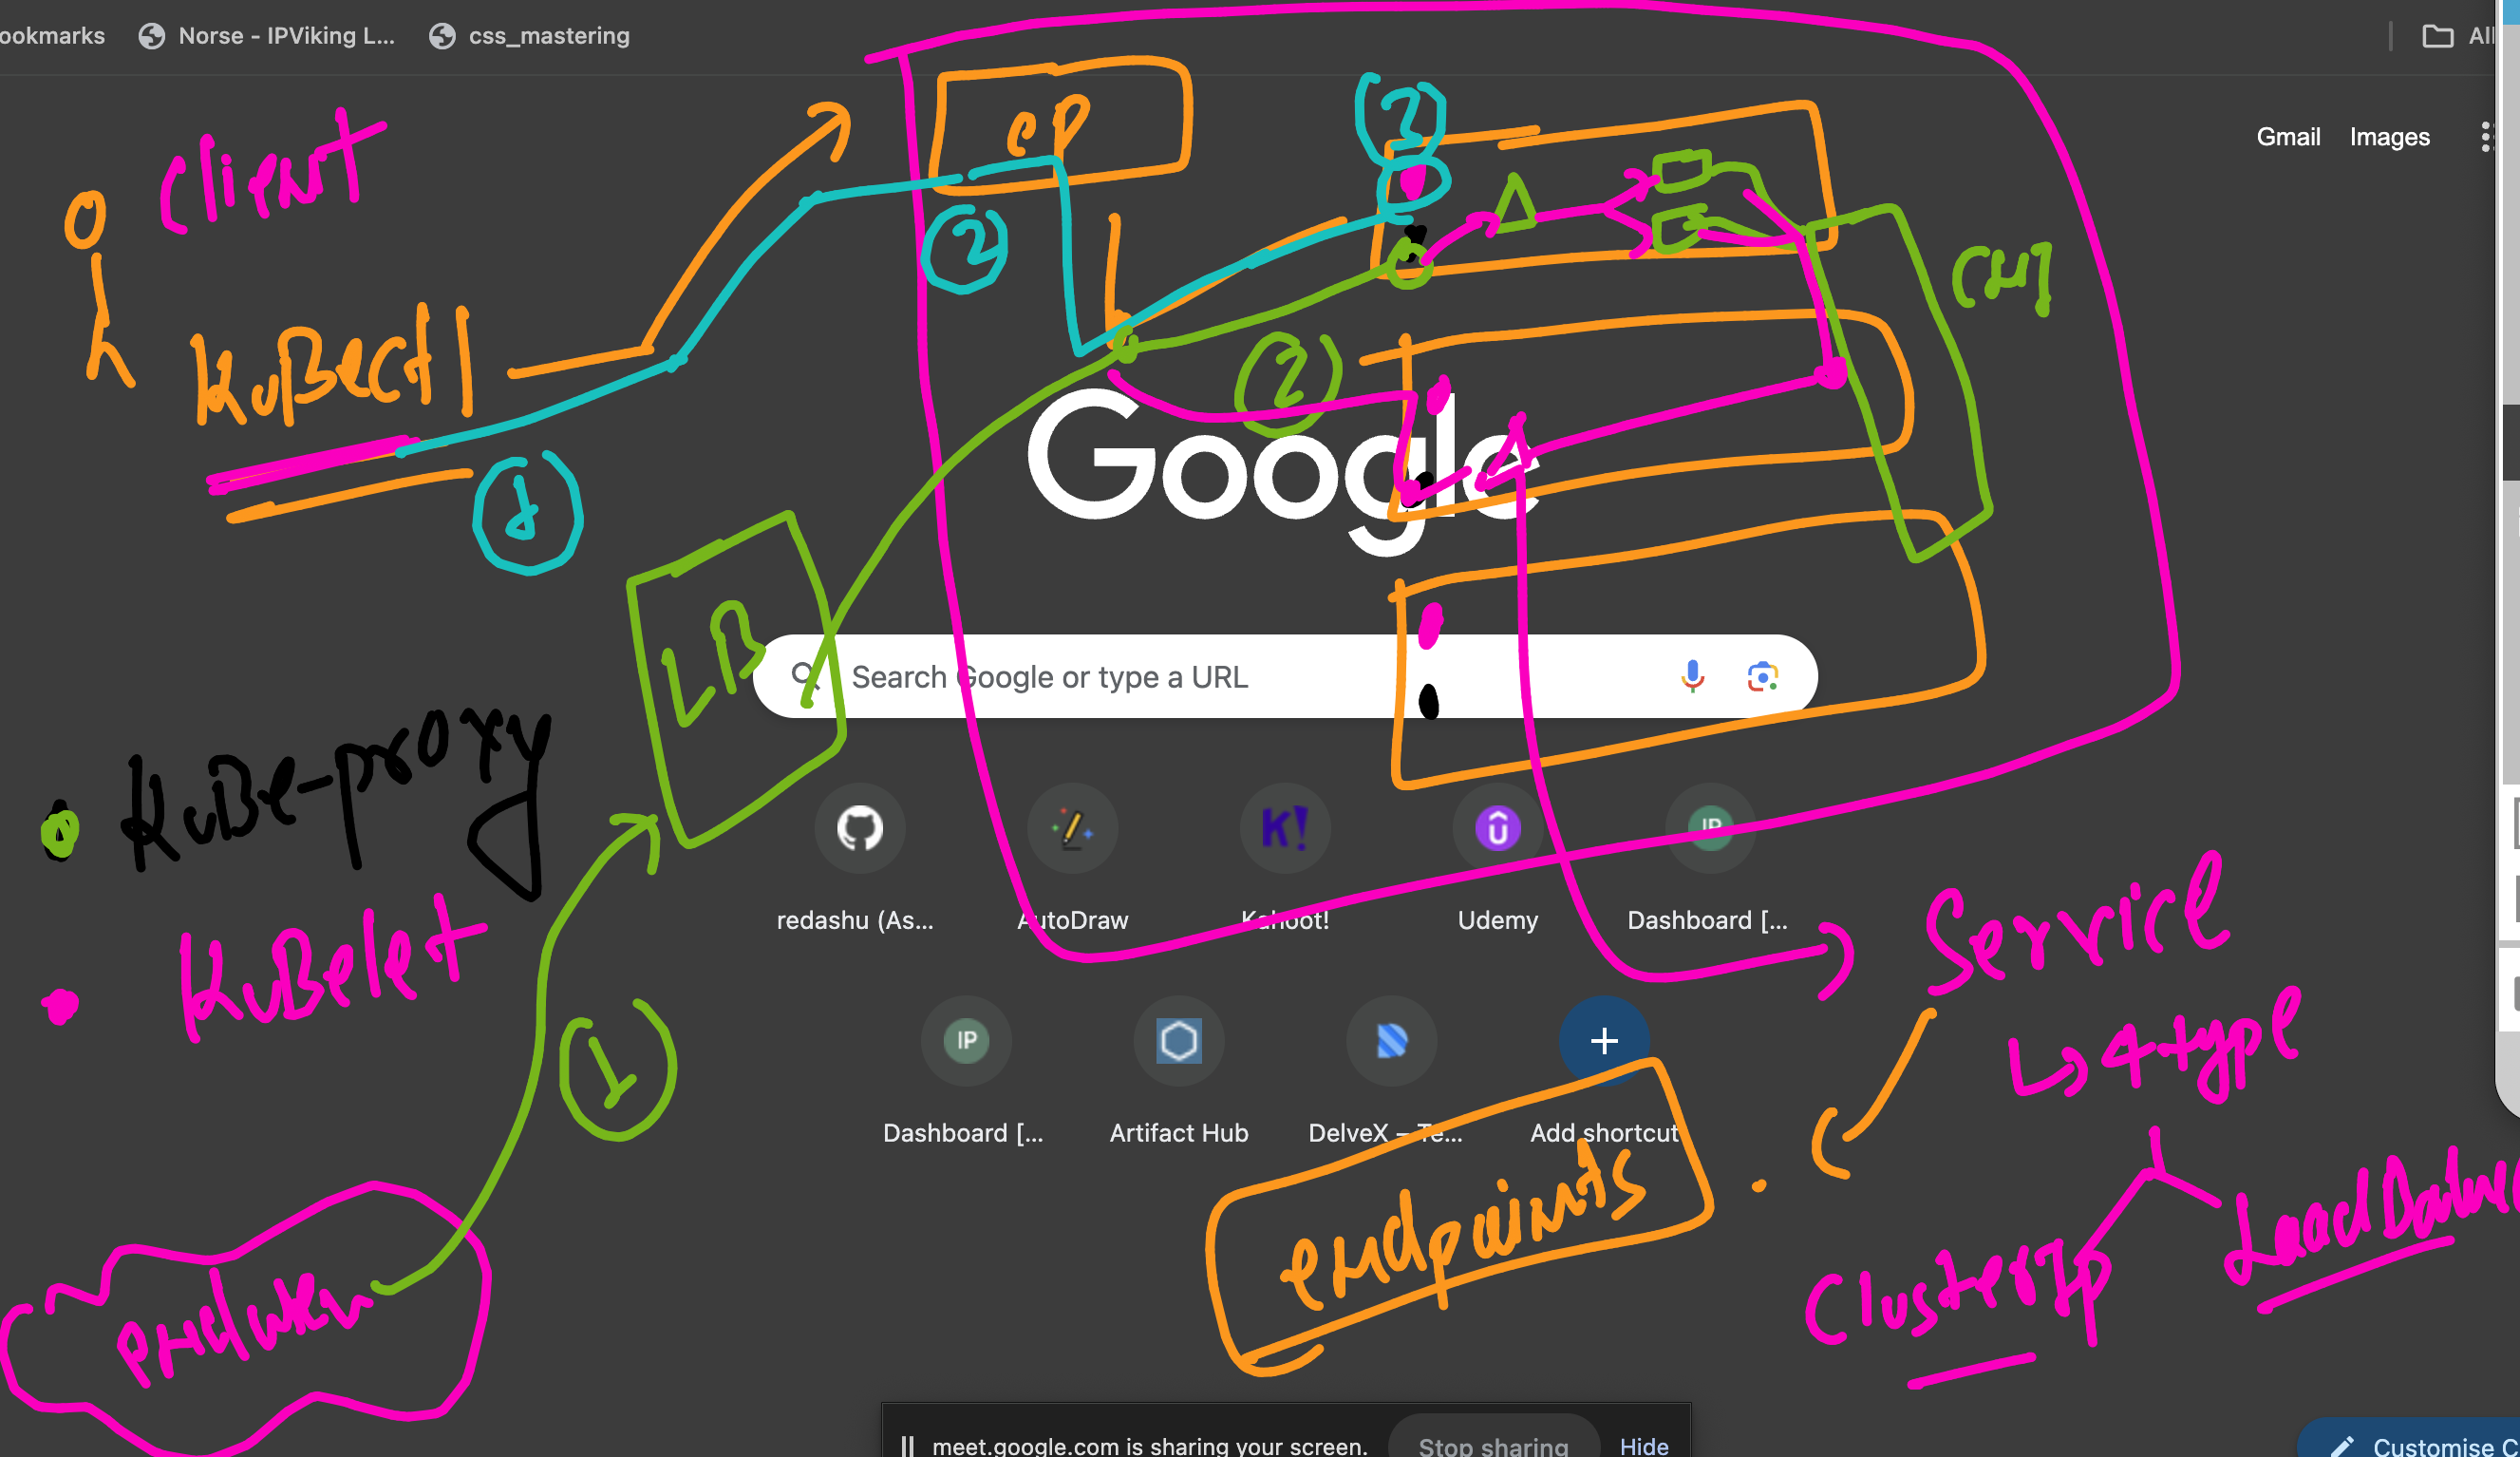 ookmarks
Norse - IPViking L...
css_mastering
All
Gmail
Images
client
KuBectl
cp
2
3
CNI
1
2
Google
LB
Search Google or type a URL
KuBe-proxy
KuBelet
1
K!
IP
redashu (As...
AutoDraw
Kahoot!
Udemy
Dashboard [...
IP
Dashboard [...
Artifact Hub
DelveX – Te...
Add shortcut
Service
4 type
ClusterIp
endpoints
meet.google.com is sharing your screen.
Stop sharing
Hide
Customise C